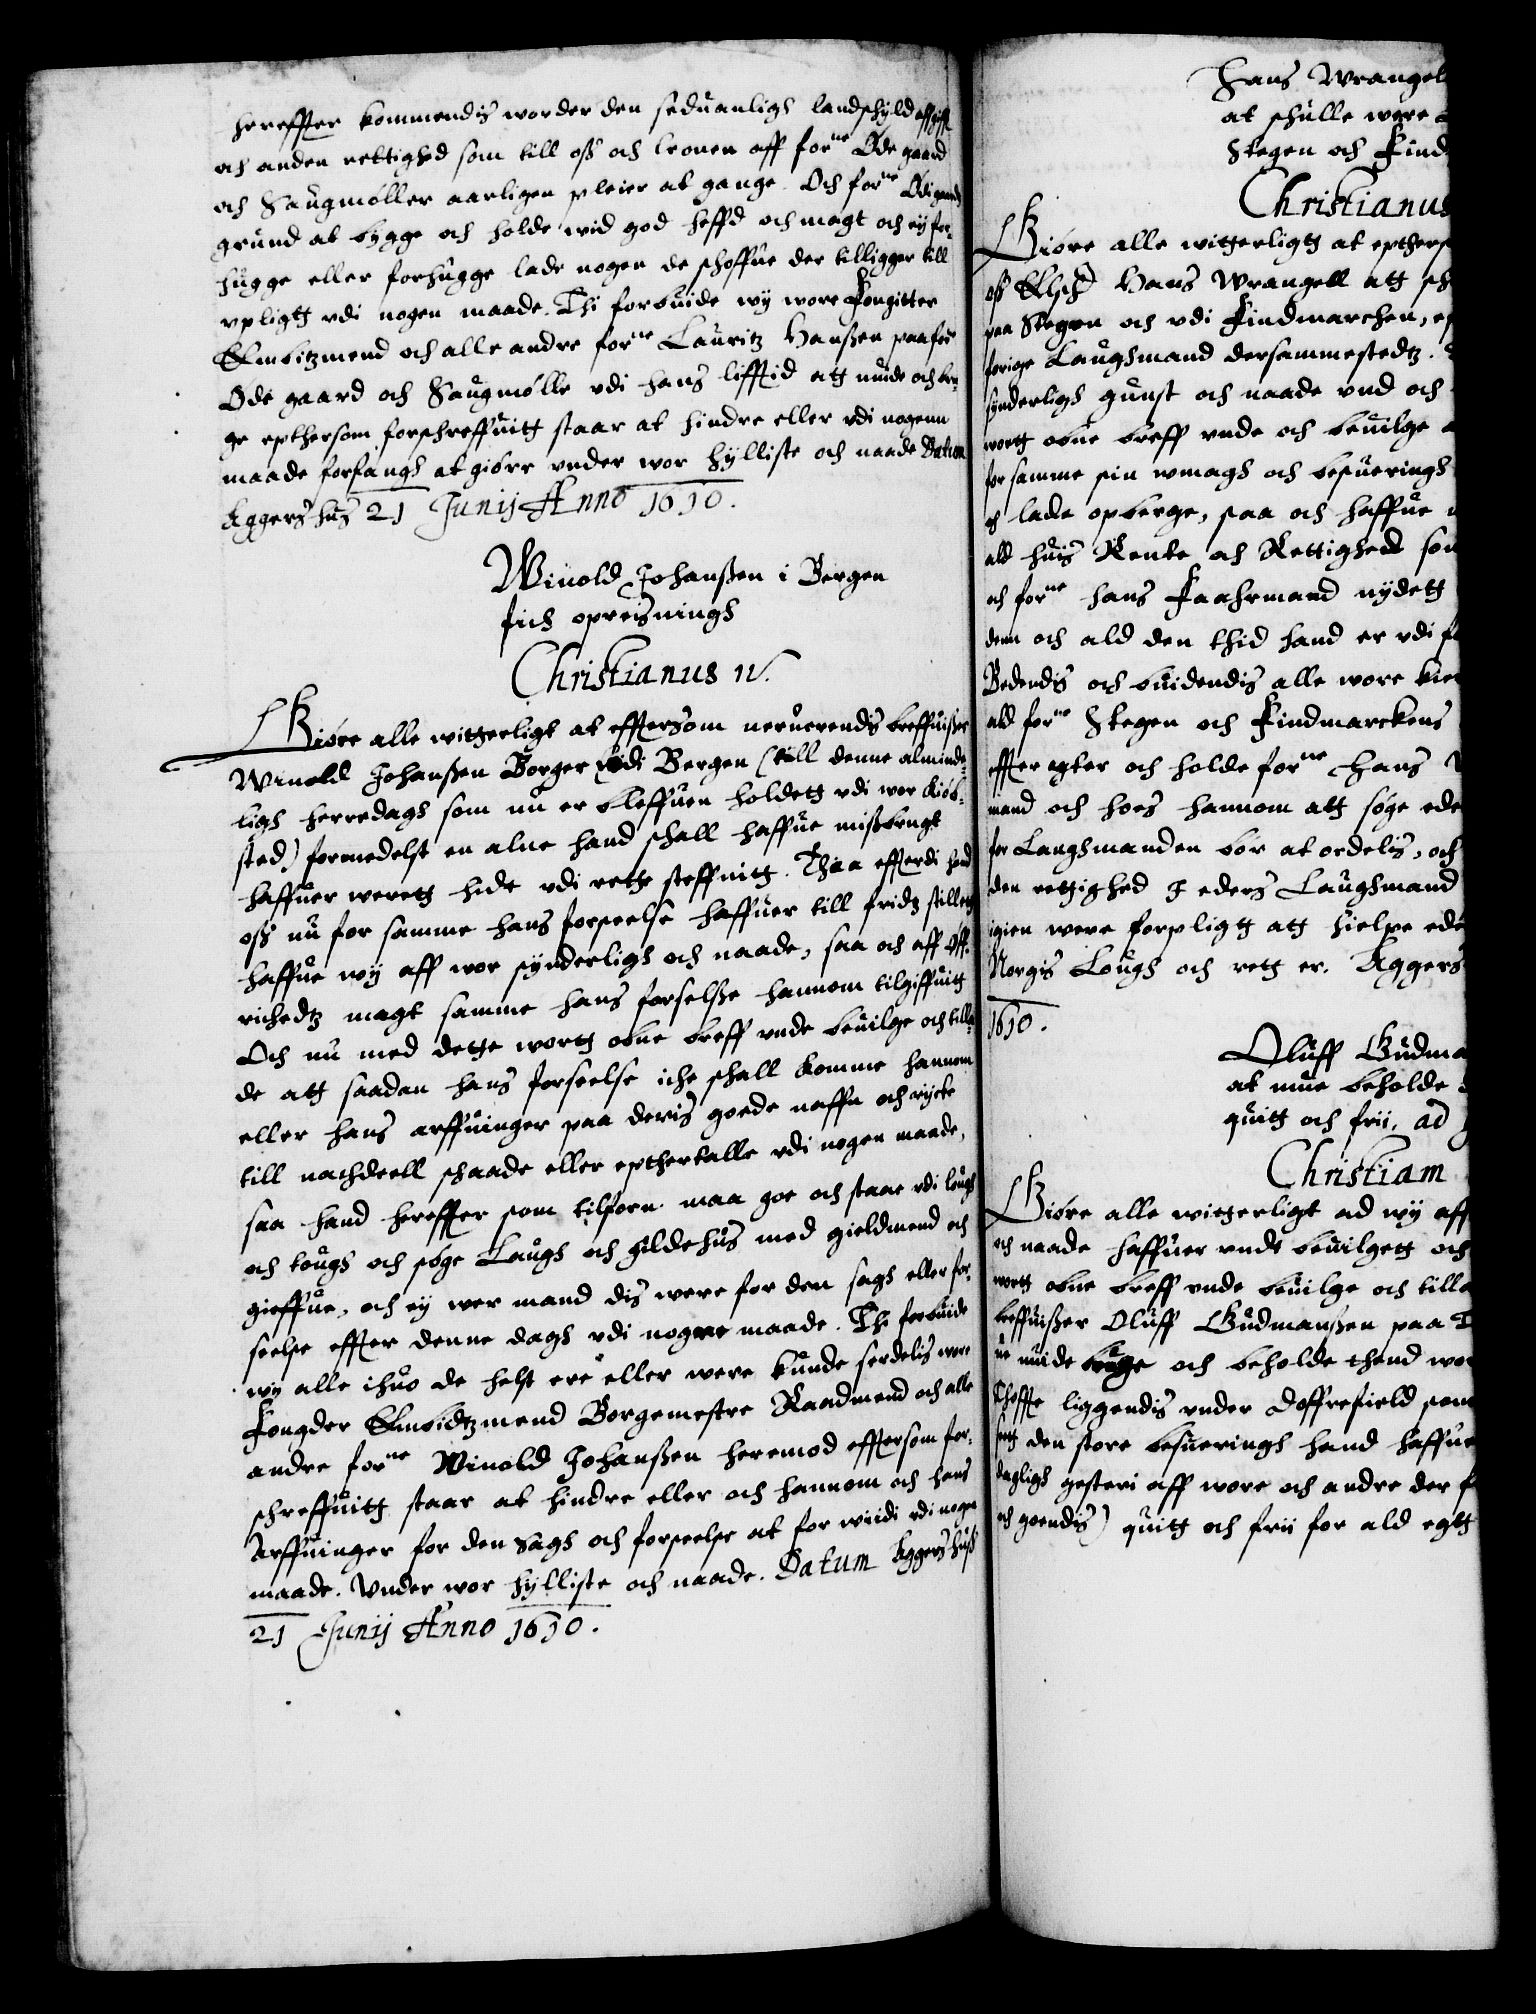 hereffter kommendis worder den seduanligh landschyld affgifft
och anden rettighed som till oss och Cronen aff forne Öde gaard
och Saugmöller aarligen pleier at gange. Och forne Ödigaardz
grund at bygge och holde wid god heffd och magt och ey for-
hugge eller forhugge lade nogen de schoffue der tilligger till
vpligtt vdi nogen maade. Thi forbiude wy wore Fougitter
Embitzmend och alle andre forne Lauritz Hanssen paa for
Öde gaard och Saugmölle vdi hans lifftid att niude och bru-
ge epthersom forschreffuitt staar at hindre eller vdi nogenn
maade forfangh at giöre vnder wor hylliste och naade Datum
Aggershus 21 Junij Anno 1610.
Winold Johanssen i Bergen
fich opreisningh
Christianus IV.
Giöre alle witterligt at efftersom neruerendis breffuisser
Winold Johanssen Borger vdi Bergen (till denne alminde-
ligh herredagh som nu er bleffuen holdett vdi wor kiöb-
sted) formedelst en alne hand schall haffue missbrugt
haffuer werett hidt vdi rette steffnitt. Thaa effterdi hand
oss nu for samme hans forseelse haffuer till fridz stillett
haffue wy aff wor synderligh och naade, saa och aff
richedtz magt samme hans forselsse hannom tilgiffuitt
Och nu med dette wortt obne breff vnde beuilge och tilla-
de att saadan hans forseelse iche schall komme hannom
eller hans arffuinger paa deris goede naffn och rycte
till nachdeell schaade eller epthertalle vdi nogen maade,
saa hand hereffter som tilforn maa goe och staae vdi lough
och tough och söge Laugh och gildehus med gieldmend och
gieffue, och ey wer mand dis were for den sagh eller for-
seelse effter denne dagh vdi nogre maade. Thi forbiude
wy alle ihuo de helst ere eller were kunde serdelis wore
Fougder Embidtzmend Borgemestre Raadmend och alle
andre forne Winold Johanssen heremod efftersom for-
schreffuitt staar at hindre eller och hannom och hans
Arffuinger for den Sagh och forseelse at for wiidi vdi nogen
maade. Vnder wor hylliste och naade. Datum Aggershuss
21 Junij Anno 1610.
Hans Wrangel
at schulle were
Stegen och Find
Christianus
Giöre alle witterligtt at epthers
oss Elsch Hans Wrangell att sch
paa Stegen och vdi Findmarchen, ep
forige Laughmand dersammestedtz.
synderligh gunst och naade vnd och
wortt obne breff vnde och beuilge a
for samme sin wmagh och besueringh
och lade opberge, saa och haffue
ald huis Rente och Rettighed som
och forne hans Faahrmand nydett
denn och ald den thid hand er vdi f
Bedendis och biudendis alle wore kie
ald forne Stegen och Findmarckens
effter agter och holde forne Hans W
mand och hoes hannom att söge ede
for Laughmanden bör at ordelis, och
den rettighed I eders Laughmand
igien were forpligtt att hielpe ede
Norgis Lough och rett er. Aggers
1610.
Oluff Gudma
at mue beholde
quitt och frii, ad
Christiam
Giöre alle witterligt ad wy aff
och naade haffuer vndt beuilgett och
wortt obne breff vnde beuilge och tilla
breffuisser Oluff Gudmanssen paa T
niude bruge och beholde thend wor
Thofte liggendis vnder Doffrefield som
den store besueringh hand haffue
dagligh gesteri aff wore och andre der f
och goendis) quitt och frii for ald egtt